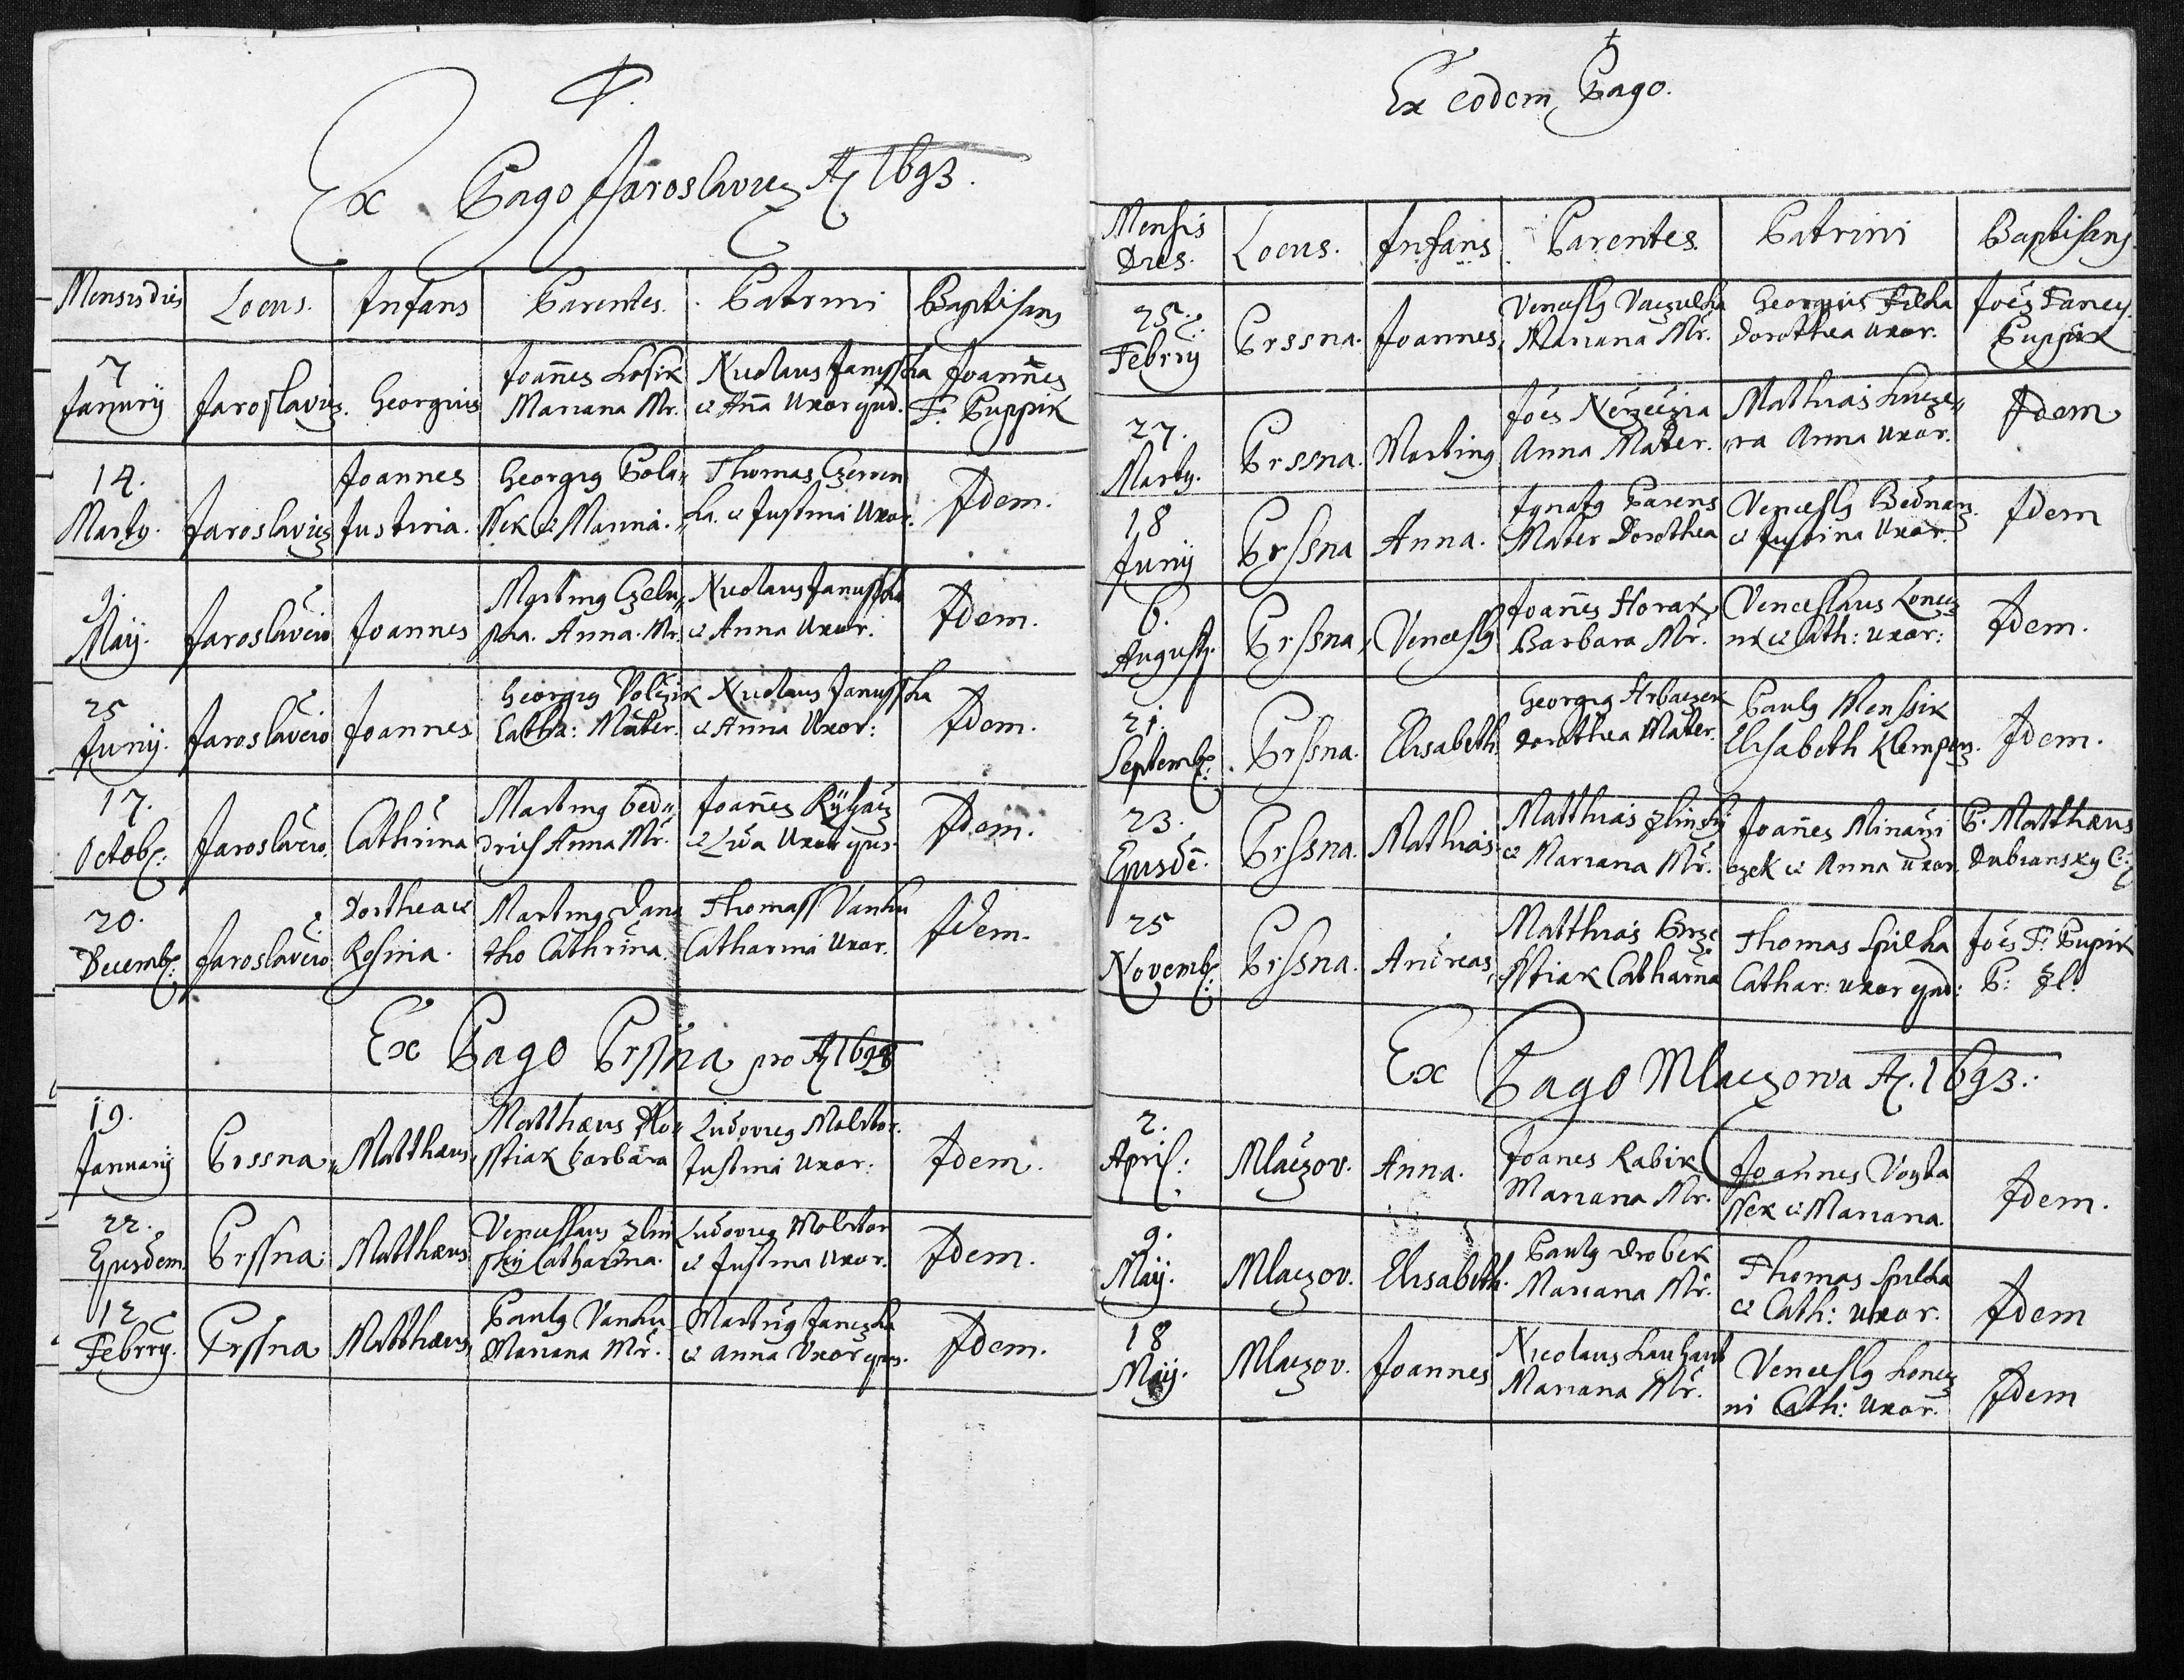 Ex Pago Jaroslavicz Aõ 1693.
Mensis dies Locus. Infans Parentes. Patrini Baptisans
7 Januarij Jaroslavicz. Georgius Joañes Losik Mariana Mr. Nicolaus Janusska et Aña Uxor Joannes F. Puppik
14. Martÿ. Jaroslavicz Joannes Justina. Georgius Pola„ ssek et Marina. Thomas Czerven„ ka. et Justina Uxor. Idem.
9. Maij. Jaroslavicio Joannes Martinus Czelu„ Anna Mr. Nicolaus Janusska et Anna Uxor. Idem.
25 Junij. Jaroslavicio Joannes Georgius Volczik Catha: Mater. Nicolaus Janusska et Anna Uxor: Idem.
17. Octob: Jaroslavicio. Cathirina Martinus bed„ drich Anna Mr. Joañes et Eva Uxor ejus. Idem.
20. Decemb: Jaroslavicio Dorthea et Rosina. Martinus Cathrina. Thomass Vanku Catharina Uxor. Idem.
Ex Pago Prssna pro Aõ 1693
19. Januarij Prssna Matthæus Matthæus sstiak barbara Ludovicus Molitor. Justina Uxor: Idem.
22. Ejusdem Prssna Matthæus Venceslaus Zlin sky Catharina. Ludovicus Molitor et Justina Uxor. Idem.
12 Febrrÿ. Prssna Matthæus Paulus Vanku Mariana Mr. Martinus Janczka et Anna Uxor ejus. Idem.
Ex eodem Pago.
Mensis Dies. Locus. Infans Parentes. Patrini Baptisans
25. Febrrÿ Prssna. Joannes Venceslus Vaczulka Mariana Mr. Georgius Filka Dorothea uxor. Joes Puppik
27. Martÿ. Prssna. Martinus Joes Anna Mater. Mathias Kucze„ ra Anna uxor. Idem
18 Junij Prssna Anna. Ignotus Parens Mater Dorothea Venceslus Bednarz et Justina Uxor. Idem
6. Augusti. Prssna Venceslus Joañes Horak Barbara Mr. Venceslaus Koncz nÿ et Cath: uxor: Idem.
21. Septemb: Prssna. Elisabeth Georgius Hrbaczek Dorothea Mater. Paulus Menssik Elisabeth Idem.
23. Ejusdẽ. Prssna. Mathias Matthias Zlinsky et Mariana Mr. Joañes Minarzi czek et Anna uxor. P. Matthæus Dubiansky
25 Novemb: Prssna. Andreas Matthias sstiak Catharina Thomas Spilka Cathar: uxor Joes F: Pupik P: Zl:
Ex Pago Mlaczowa Aõ. 1693.
2. April: Mlaczov. Anna. Joanes Rabik Mariana Mr. Joannes Voyta ssek et Mariana. Idem.
9. Maij. Mlaczov. Elisabeth. Paulus Drobek Mariana Mr. Thomas Spilka et Cath: uxor. Idem
18 Maij. Mlaczov. Joannes Nicolaus Mariana Mr. Venceslus Koncz ni Cath: uxor. Idem